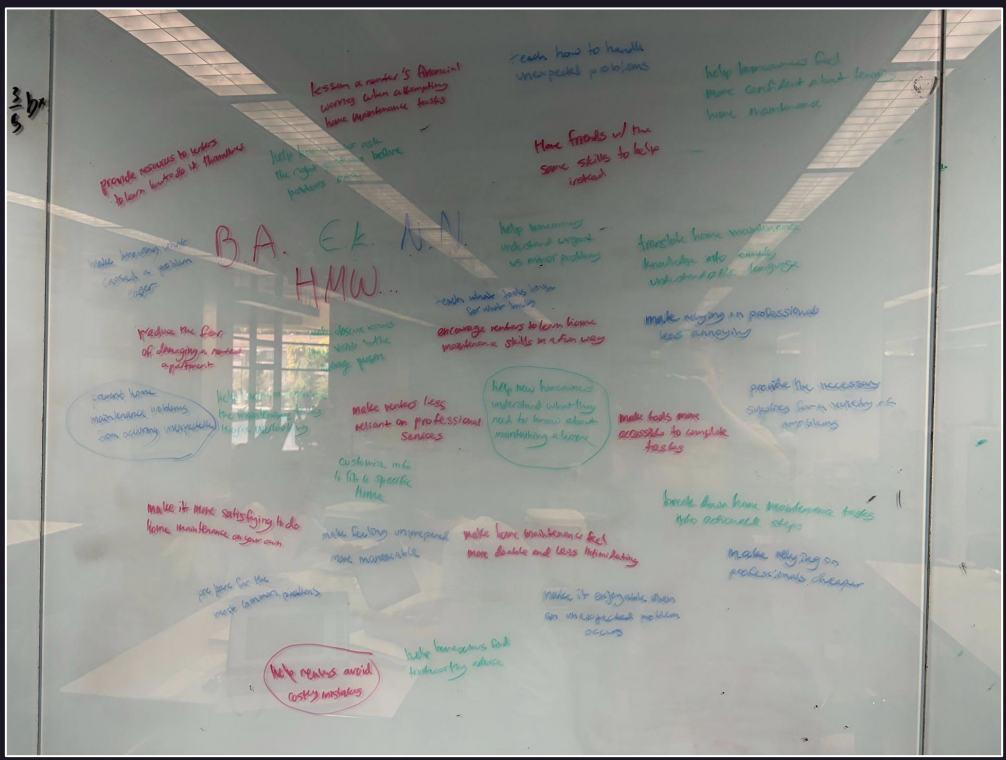 teach how to handle
unexpected problems
lessen a renter's financial
worries when attempting
home maintenance tasks
help homeowners feel
more confident about
home maintenance
Have friends w/ the
same skills to help
instead
provide resources to renters
to learn how to do it themselves
help ask
the right before
problems
B.A. E.K. N.N.
HMW...
help homeowners
understand urgent
vs minor problems
translate home maintenance
knowledge into easily
understandable language
make knowing what
caused a problem
easier
teach what tools
for what
encourage renters to learn home
maintenance skills in a fun way
make relying on professional
less annoying
reduce the fear
of damaging a rented
apartment
home
maintenance
occurring unexpectedly
help
the
make renters less
reliant on professional
services
help new homeowners
understand what they
need to know about
maintaining a home
make tools more
accessible to complete
tasks
provide the necessary
supplies for a variety of
customize info
to fit a specific
home
make it more satisfying to do
home maintenance on your own
make feeling unprepared
more manageable
make home maintenance feel
more doable and less intimidating
break down home maintenance tasks
into actionable steps
make relying on
professionals cheaper
prepare for the
most common problems
make it enjoyable when
an unexpected problem
occurs
help renters avoid
costly mistakes
help homeowners find
trustworthy advice